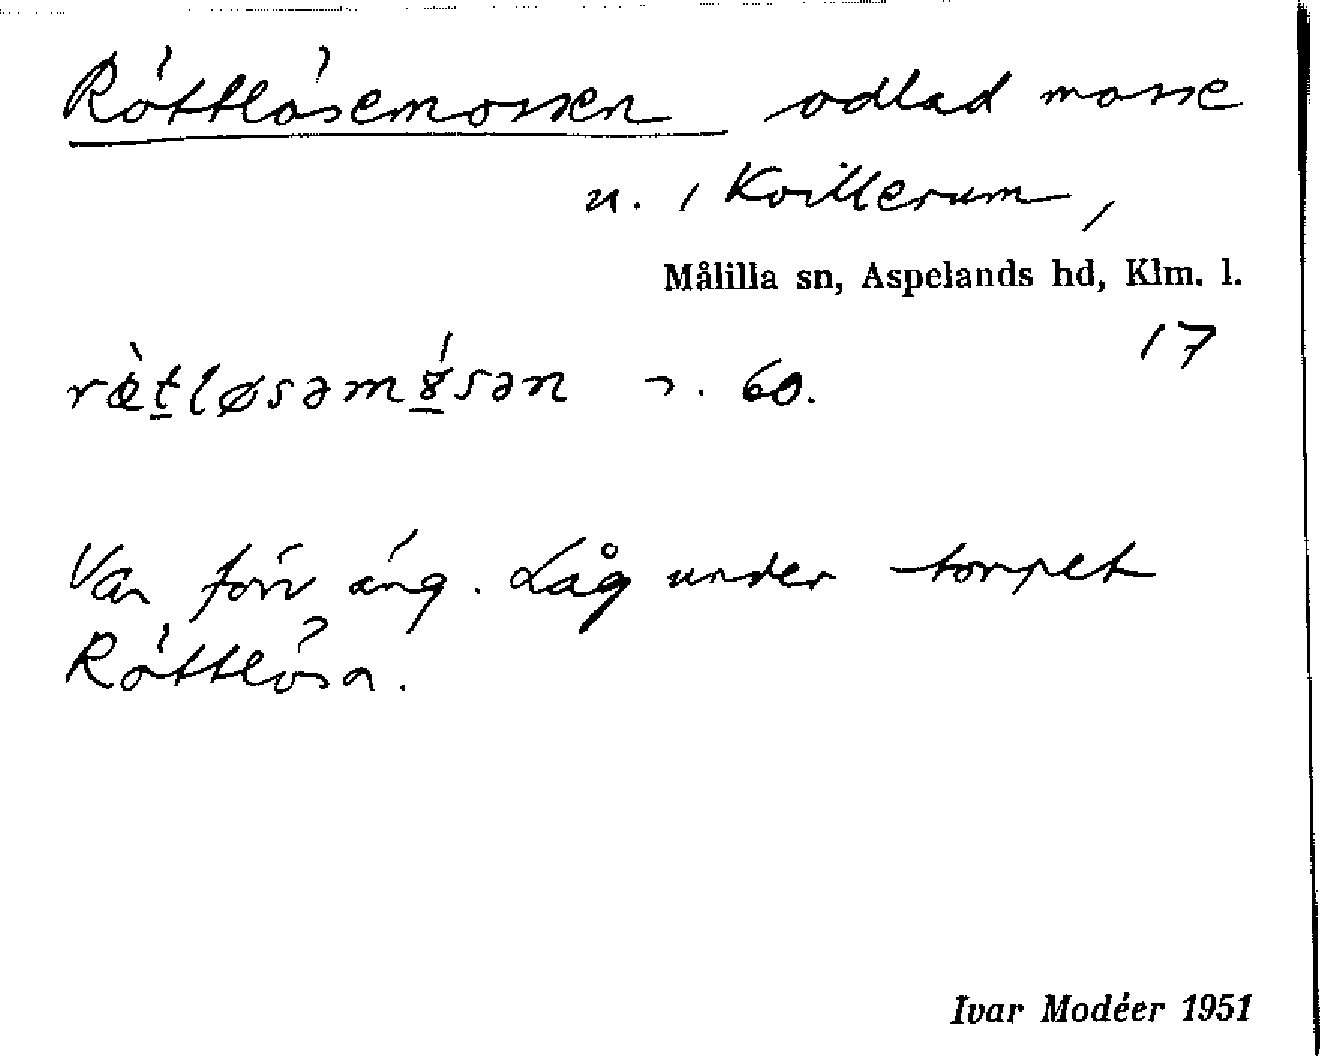 Röttlösemossen odlad mosse
n. i Kvillerum,
Målilla sn, Aspelands hd, Klm. l.
17
rœ̀t̲løsəmɣ̲́sən 60.
Var förr äng. Låg under torpet
Röttlösa.
Ivar Modéer 1951